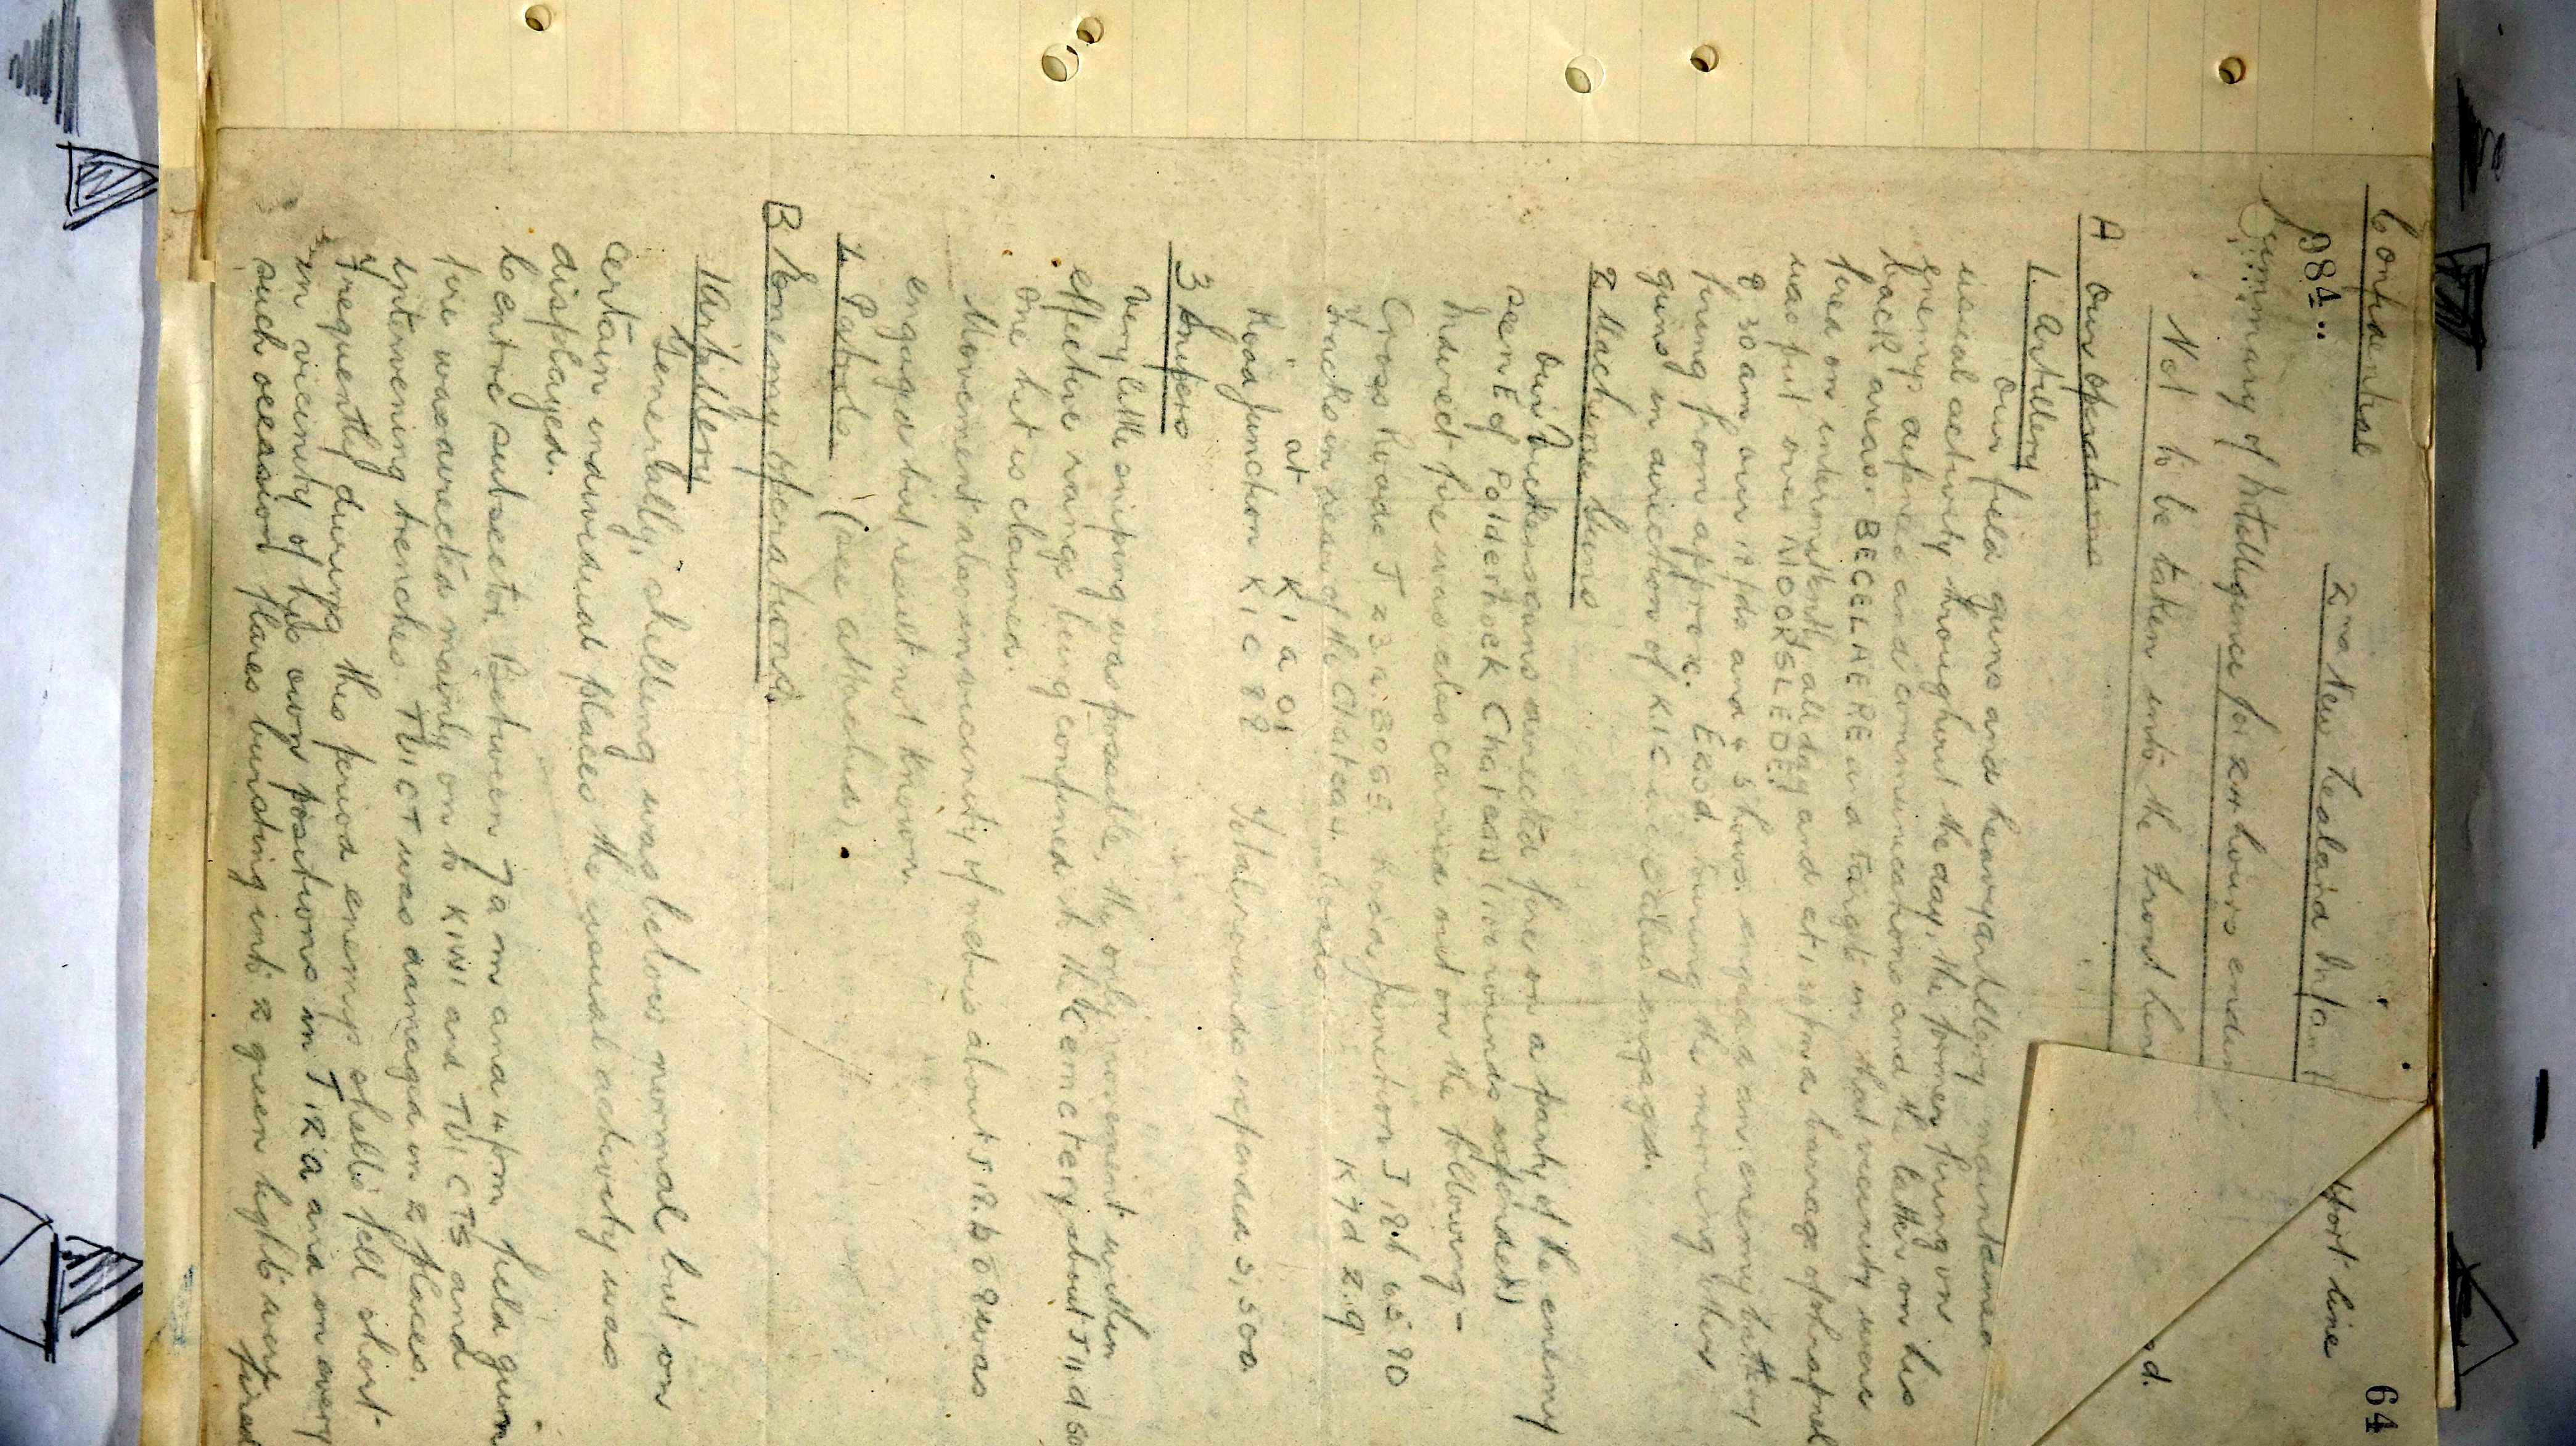 Confidential
64
984..
2nd New Zealand Infant
Summary of Intelligence for 24 hours ending
Hort line
Not to be taken into the Front Line
d.
A Our operations
1. Artillery
Our field guns and heavy artillery maintained
usual activity throughout the day, the former firing on
enemy's defences and communications and the latter on his
back areas. BECELAERE and targets in that vicinity were
fired on intermittently all day and at pm a barrage of shrapnel
was put over MOORSLEDE.
8.30 am our 18 pdrs and 4.5 hows. engaged an enemy battery
firing from approx. E20d. During the morning other
guns in direction of K11C were also engaged.
2 Machine Guns
Our Vickers guns directed fire on a party of the enemy
seen E of Polderhoek Chateau (100 rounds expended)
Indirect fire was also carried out on the following -
Cross Roads J 23 a 30 65 Road Junction J 18 b 65 90
Tracks in rear of the Chateau. K 7 d 2.9
at K 1 a 01
Road Junction K 1 C 88 Total rounds expended 3,500.
3 Snipers
Very little sniping was possible, the only movement within
effective range being confined to the Cemetery, about J 11 d 50
One hit is claimed.
Movement also in vicinity of Mebus about J 12. b 0 2 was
engaged but result not known.
4 Patrols (see attached)
B Enemy operations
1 Artillery
Generally, shelling was below normal, but on
certain individual places the usual activity was
displayed.
Centre subsector. Between 7 am and 4 pm field gun
fire was directed mainly on to KIWI and TUI CTS and
intervening trenches. TUI CT was damaged in 2 places.
Frequently during the period enemy shells fell short
in vicinity of his own positions in J 12 a and on every
such occasion flares bursting into 2 green lights were
fired